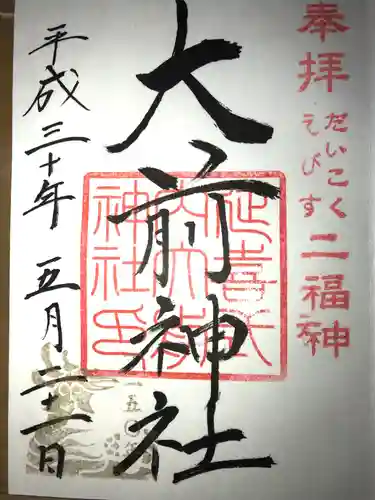 奉拝
だいこく
えびす
二福神
大前神社
延喜式
内大前
神社印
平成三十年
五月二十一日